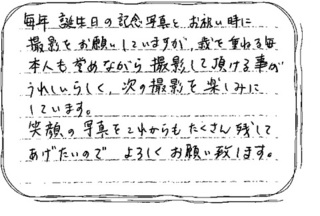 毎年 誕生日の記念写真と、お祝い時に
撮影をお願いしていますが、歳を重ねる毎
本人も誉めながら撮影して頂ける事が
うれしいらしく、次の撮影を楽しみに
しています。
笑顔の写真をこれからもたくさん残して
あげたいので よろしくお願い致します。